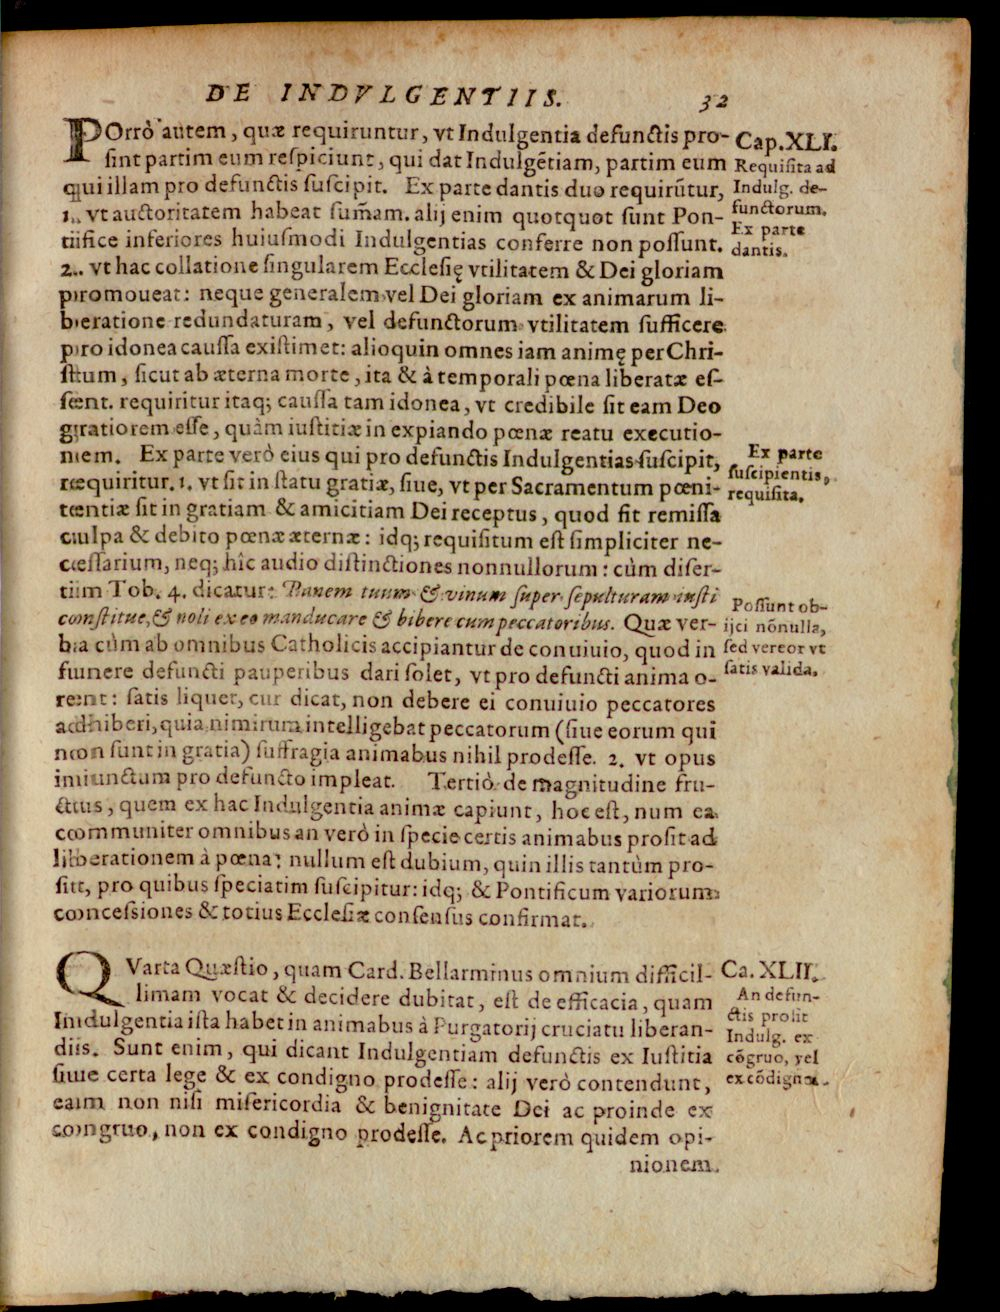 DE INDVLGENTIIS. 32
POrrò autem, quæ requiruntur, vt Indulgentia defunctis pro-
sint partim eum respiciunt, qui dat Indulgẽtiam, partim eum
qui illam pro defunctis suscipit. Ex parte dantis duo requirũtur,
1. vt auctoritatem habeat sum̃am. alij enim quotquot sunt Pon-
tifice inferiores huiusmodi Indulgentias conferre non possunt.
2. vt hac collatione singularem Ecclesię vtilitatem & Dei gloriam
promoueat: neque generalem vel Dei gloriam ex animarum li-
beratione redundaturam, vel defunctorum vtilitatem sufficere
pro idonea caussa existimet: alioquin omnes iam animę per Chri-
stum, sicut ab æterna morte, ita & à temporali pœna liberatæ es-
sent. requiritur itaq; caussa tam idonea, vt credibile sit eam Deo
gratiorem esse, quàm iustitiæ in expiando pœnæ reatu executio-
nem. Ex parte verò eius qui pro defunctis Indulgentias suscipit,
requiritur. 1. vt sit in statu gratiæ, siue, vt per Sacramentum pœni-
tentiæ sit in gratiam & amicitiam Dei receptus, quod fit remissa
culpa & debito pœnæ æternæ: idq; requisitum est simpliciter ne-
cessarium, neq; hîc audio distinctiones nonnullorum: cùm diser-
tim Tob. 4. dicatur: Panem tuum & vinum super sepulturam iusti
constitue, & noli ex eo manducare & bibere cum peccatoribus. Quæ ver-
ba cùm ab omnibus Catholicis accipiantur de conuiuio, quod in
funere defuncti pauperibus dari solet, vt pro defuncti anima o-
rent: satis liquet, cur dicat, non debere ei conuiuio peccatores
adhiberi, quia nimirum intelligebat peccatorum (siue eorum qui
non sunt in gratia) suffragia animabus nihil prodesse. 2. vt opus
iniunctum pro defuncto impleat. Tertiò de magnitudine fru-
ctus, quem ex hac Indulgentia animæ capiunt, hoc est, num ea
communiter omnibus an verò in specie certis animabus prosit ad
liberationem à pœna? nullum est dubium, quin illis tantùm pro-
sit, pro quibus speciatim suscipitur: idq; & Pontificum variorum
concessiones & totius Ecclesiæ consensus confirmat.
Cap. XLI.
Requisita ad
Indulg. de-
functorum.
Ex parte
dantis.
Ex parte
suscipientis,
requisita.
Possunt ob-
ijci nõnulla,
sed vereor vt
satis valida.
QVarta Quæstio, quam Card. Bellarminus omnium difficil-
limam vocat & decidere dubitat, est de efficacia, quam
Indulgentia ista habet in animabus à Purgatorij cruciatu liberan-
dis. Sunt enim, qui dicant Indulgentiam defunctis ex Iustitia
siue certa lege & ex condigno prodesse: alij verò contendunt,
eam non nisi misericordia & benignitate Dei ac proinde ex
congruo, non ex condigno prodesse. Ac priorem quidem opi-
nionem
Ca. XLII.
An defun-
ctis prosit
Indulg. ex
cõgruo, vel
ex cõdigno.